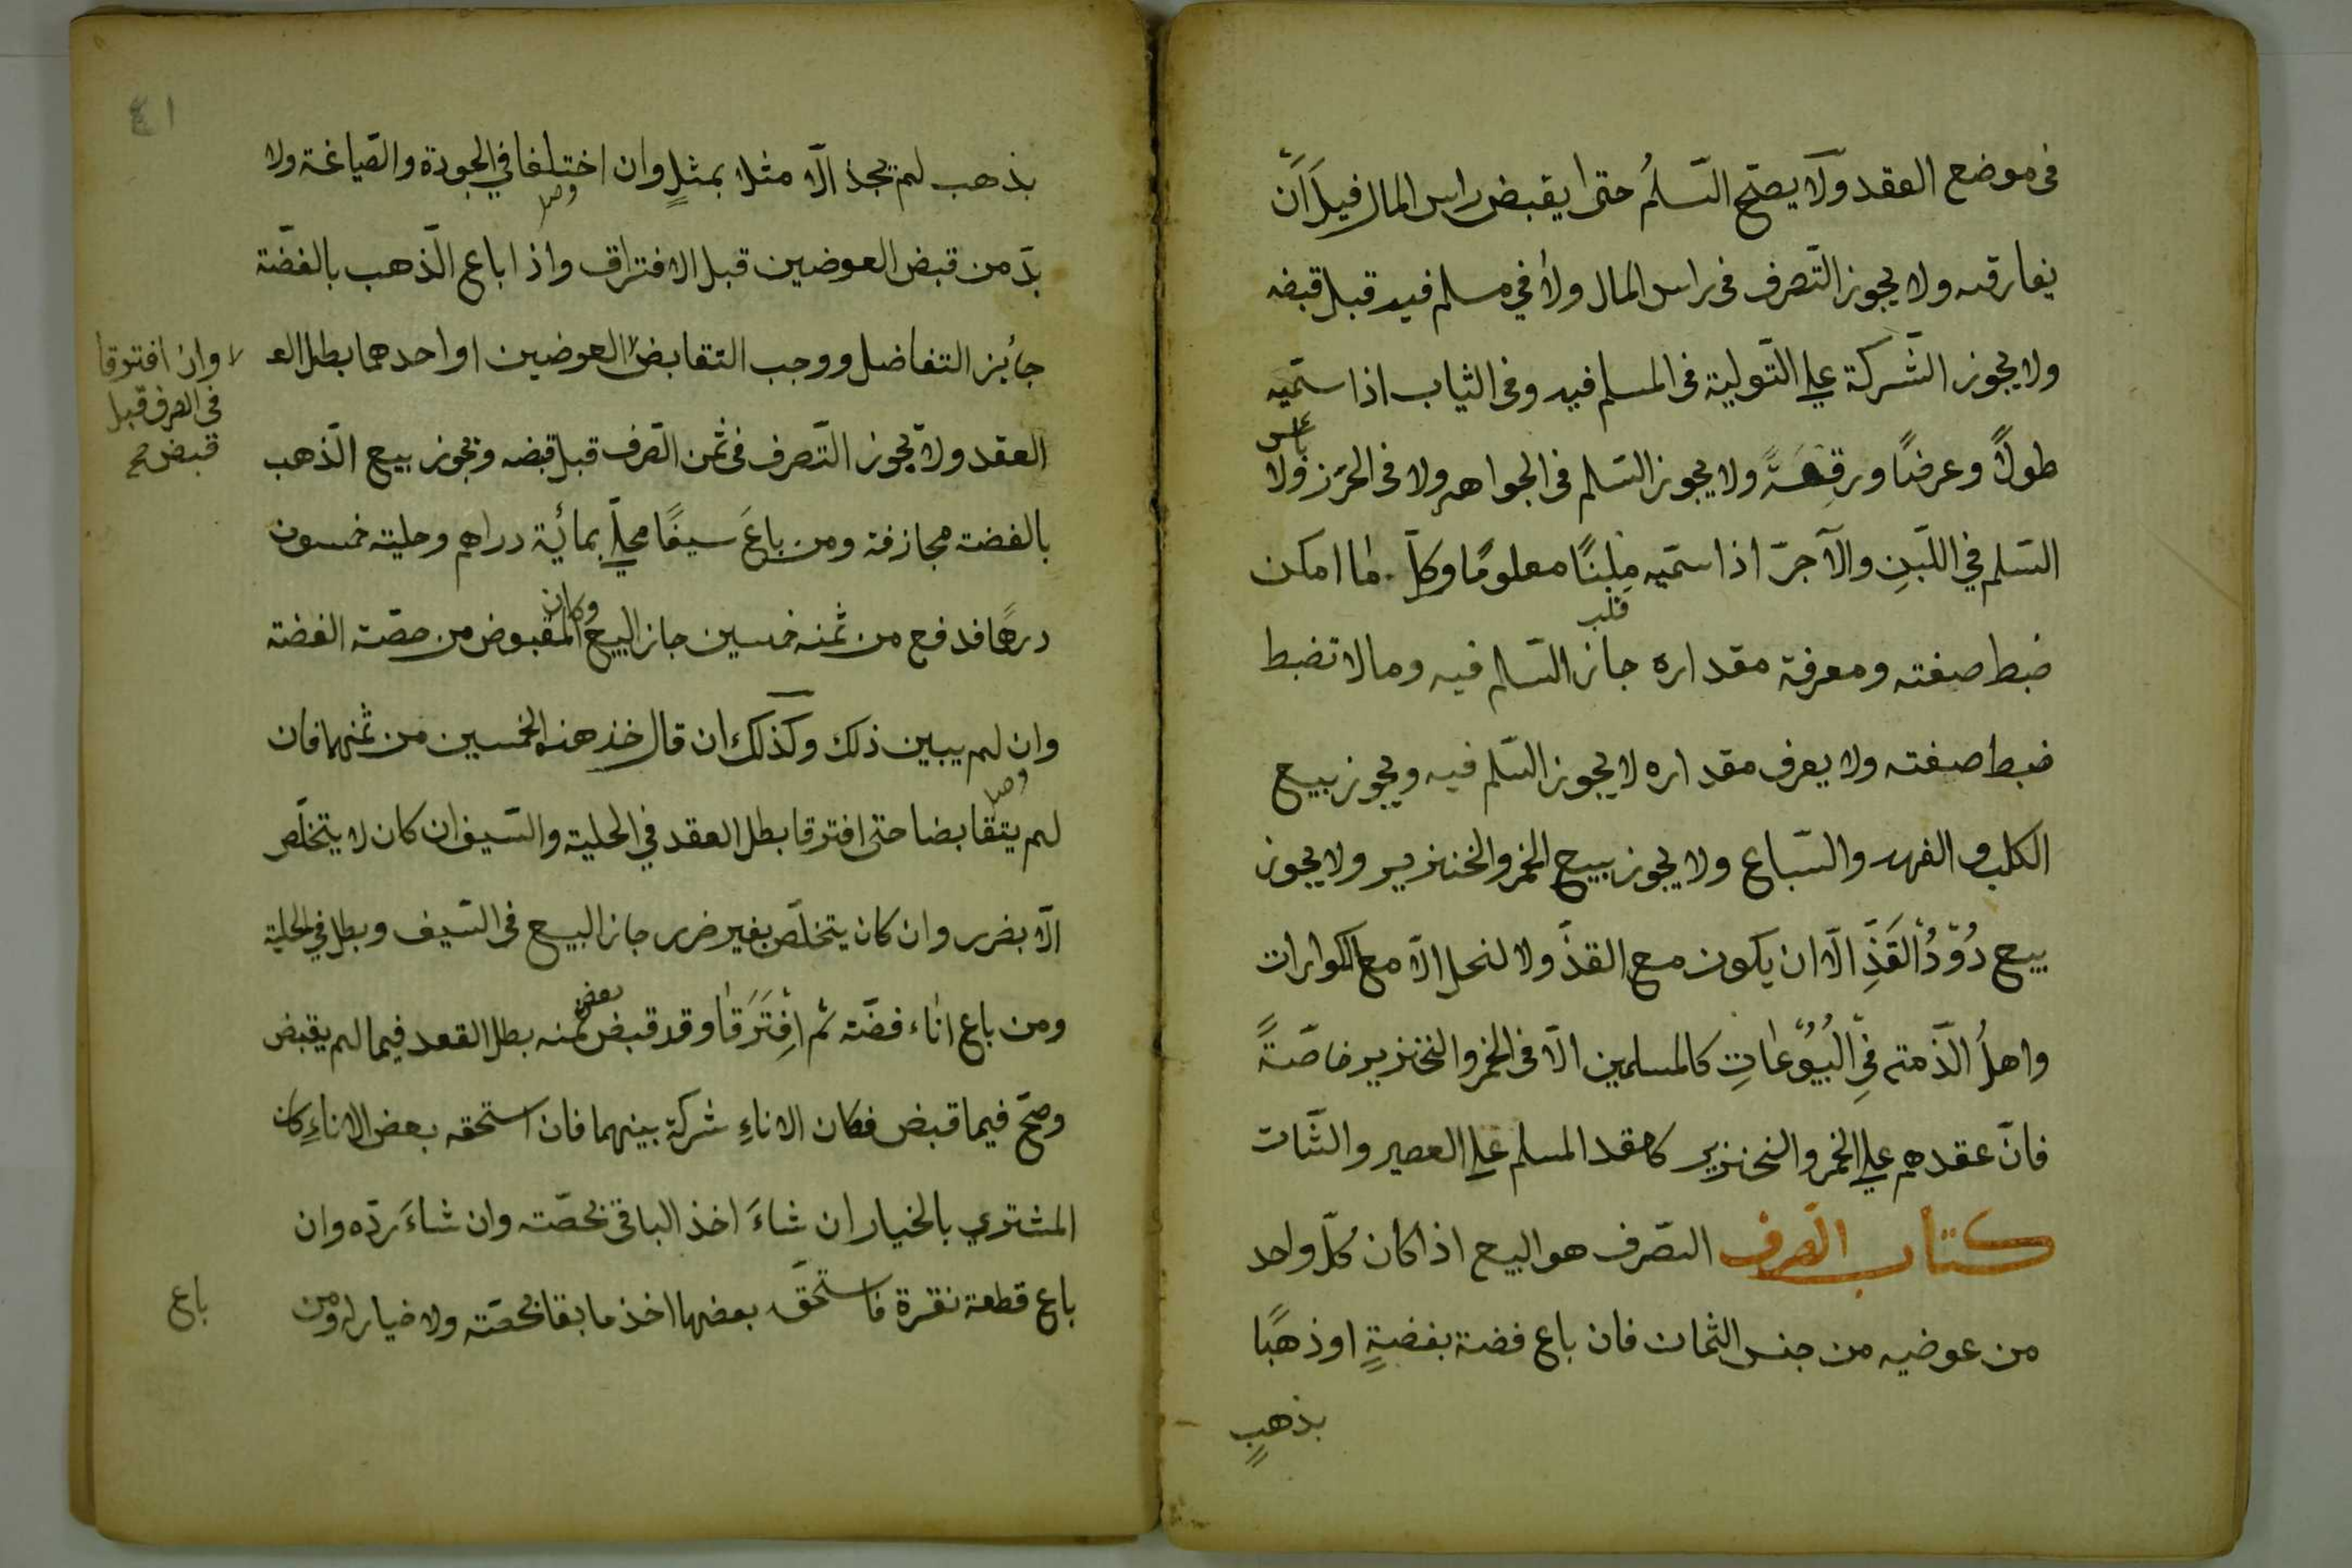 فى موضع العقد ولا يصحّ السّلمُ حتى يقبض راس المال قبل اَنْ
يفارقه ولا يجوز التّصرف فى راس المال ولا في مسلم فيه قبل قبضه
ولا يجوز الشّركة علي التّولية فى المسلم فيه وفى الثياب اذا ستميه
طولاً وعرضًا ورقعةً ولا يجوز السّلم فى الجواهر ولا فى الخرز ولا
باس
السّلم في اللّبنِ والآجرّ اذا ستميه مِلبنًا معلومًا وكلّ ما امكن
قلب
ضبط صفته ومعرفة مقداره جاز السّلم فيه وما لا تضبط
ضبط صفته ولا يعرف مقداره لا يجوز السّلم فيه ويجوز بيع
الكلب و الفهد والسّباع ولا يجوز بيع الخمر والخنزير ولا يجوز
بيع دُوْدُ القَذِّ الّا ان يكون مع القذّ ولا لنحل الّا مع الكوارات
واهلُ الذّمته فِي البُيُوْعاتِ كالمسلمين الّا فى الخمر والخنزير خاصّةً
فانّ عقدهم علي الخمر والخنزير كاعقد المسلم علي العصير والشّات
كتاب الصّرف الصّرف هو البيع اذا كان كلّ واحد
من عوضيه من جنس الثمان فان باع فضة بفضةٍ او ذهبًا
بذهبٍ
٤١
بذهب لم يجذ الّا مثلا بمثلٍ وان اختلفا في الجودة والصّياغة ولا
وصل
بدّ من قبض العوضين قبل الافتراق واذا باع الذّهب بالفضّة
جائز التفاضل ووجب التقابض العوضين او احدهما بطل الع
وان افترقا
فى الصرف قبل
قبض صح
العقد ولا يجوز التّصرف فى ثمن الصّرف قبل قبضه ويجوز بيع الذّهب
بالفضة مجازفة ومن باعَ سيفًا محلّي بمائية دراهم وحليته خمسون
درهمًا فدفع من ثمنه خمسين جاز البيعُ وكان المقبوض من حصّة الفضة
وان لم يبين ذلك وكذلك ان قال خذ هذه الخمسين من ثمنهما فان
وصل
لم يتقابضا حتى افترقا بطل العقد في الحلية والسّيف ان كان لا يتخلّص
الّا بضرر وان كان يتخلّص بغير ضرر جاز البيع فى السّيف وبطل في الحلية
ومن باع اناء فضّة ثم افْتَرَقا وقد قبض بعض ثمنه بطل القعد فيما لم يقبض
وصحّ فيما قبض فكان الاناءِ شركة بينهما فان استحقه بعض الاناءِ كان
المشتري بالخيار ان شاءَ اخذ الباقى بحصّته وان شاءَ ردّه وان
باع قطعة نقرة فاستحقّ بعضها اخذ ما بقا بحصّته ولا خيار له ومن
باع